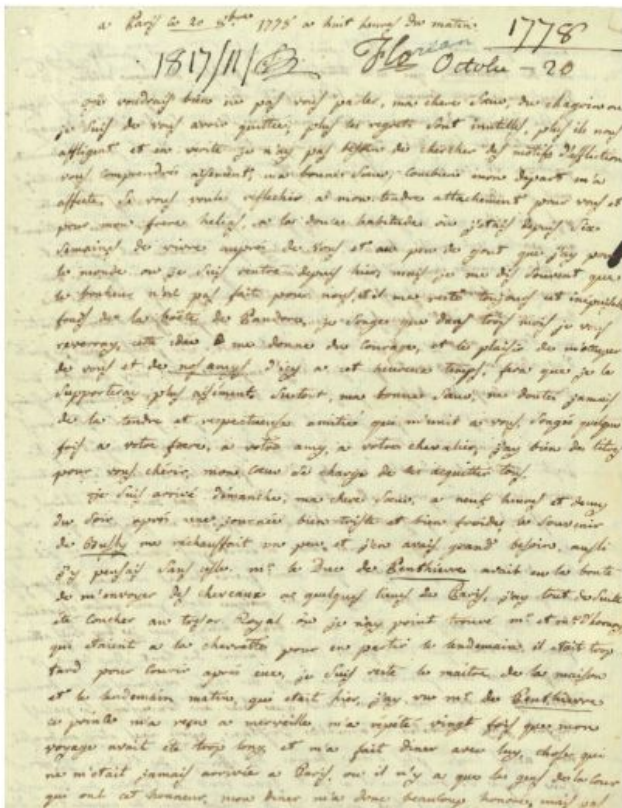 a Paris ce 20 8bre 1778 a huit heures du matin.
1778
1817/11/
Florean
Octobre - 20
je voudrais bien ne pas vous parler, ma chere Sœur, du chagrin ou
je suis de vous avoir quittée; plus les regrets sont inutiles, plus ils nous
affligent et en verité je n'ay pas besoin de chercher des motifs d'affliction
vous comprendrés aisément, ma bonne Sœur, combien mon départ m'a
affecté, si vous voulés reflechir a mon tendre attachement pour vous et
pour mon frere a la douce habitude ou j'etais depuis six
semaines de vivre auprès de vous et au peu de gout que j'ay pour
le monde ou je suis rentré depuis hier; mais je me dis souvent que
le bonheur n'est pas fait pour nous, et il me reste toujours cet
fond de la boëte de Pandore, je songes que dans trois mois je vous
reverray, cette idée me donne du courage, et le plaisir de m'occuper
de vous et de nos amys d'icy a cet heureux temps, fera que je le
supporteray plus aisément. Surtout, ma bonne Sœur, ne doutés jamais
de la tendre et respectueuse amitié qui m'unit a vous, songés quelque
fois a votre frere, a votre amy, a votre chevalier, j'ay bien des titres
pour vous chérir, mon cœur se charge de les acquitter tous.
je suis arrivé dimanche, ma chere Sœur, a neuf heures et demy
du soir, après une journée bien triste et bien froide; le souvenir
de me rechauffait un peu, et j'en avais grand besoin, aussi
j'y pensais sans cesse. mr. le Duc de Penthievre avait eu la bonté
de m'envoyer des chevaux a quelques lieues de Paris, j'ay tout de suite
été coucher au Royal ou je n'ay point trouvé mr. et me. d'hornoy
qui étaient a la chevrette pour en partir le lendemain, il était trop
tard pour courir après eux, je suis resté le maitre de la maison
et le lendemain matin, qui était hier, j'ay vu mr. de Penthievre
ce prince m'a reçu a merveille, m'a répété vingt fois que mon
voyage avait été trop long, et m'a fait diner avec luy, chose qui
ne m'était jamais arrivée a Paris, ou il n'y a que les gens de la cour
qui ont cet honneur, mon diner m'a donc beaucoup honoré, mais pas